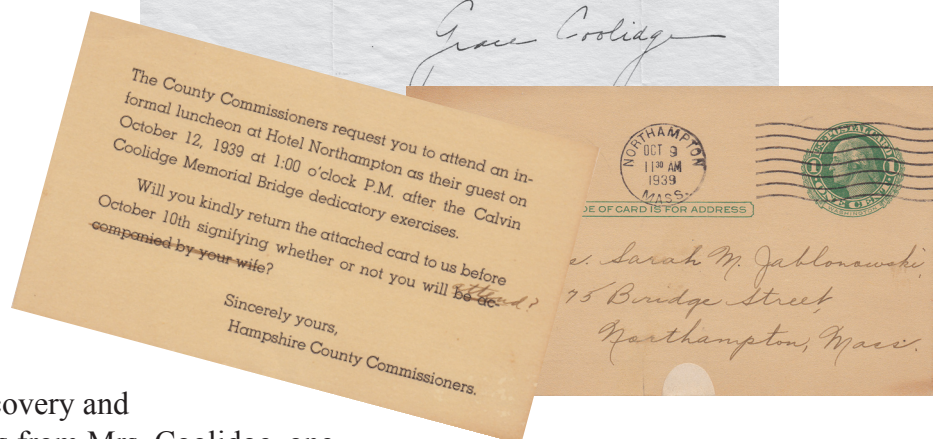 Grace Coolidge
The County Commissioners request you to attend an in-
formal luncheon at Hotel Northampton as their guest on
October 12, 1939 at 1:00 o'clock P.M. after the Calvin
Coolidge Memorial Bridge dedicatory exercises.
Will you kindly return the attached card to us before
October 10th signifying whether or not you will be ac- attend?
companied by your wife?
Sincerely yours,
Hampshire County Commissioners.
NORTHAMPTON
OCT 9
11 30 AM
1939
MASS.
U.S. POSTAL CARD
1 1
ONE CENT
WASHINGTON
DE OF CARD IS FOR ADDRESS
s. Sarah M. Jablonowski
75 Bridge Street,
Northampton, Mass.
covery and
s from Mrs. Coolidge, one